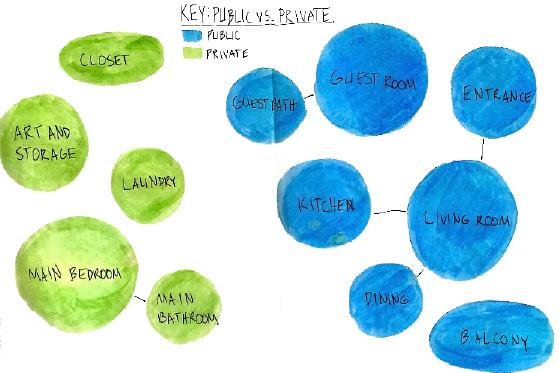 KEY: PUBLIC VS. PRIVATE
PUBLIC
PRIVATE
CLOSET
GUEST ROOM
GUEST BATH
ENTRANCE
ART AND
STORAGE
LAUNDRY
KITCHEN
LIVING ROOM
MAIN BEDROOM
MAIN
BATHROOM
DINING
BALCONY